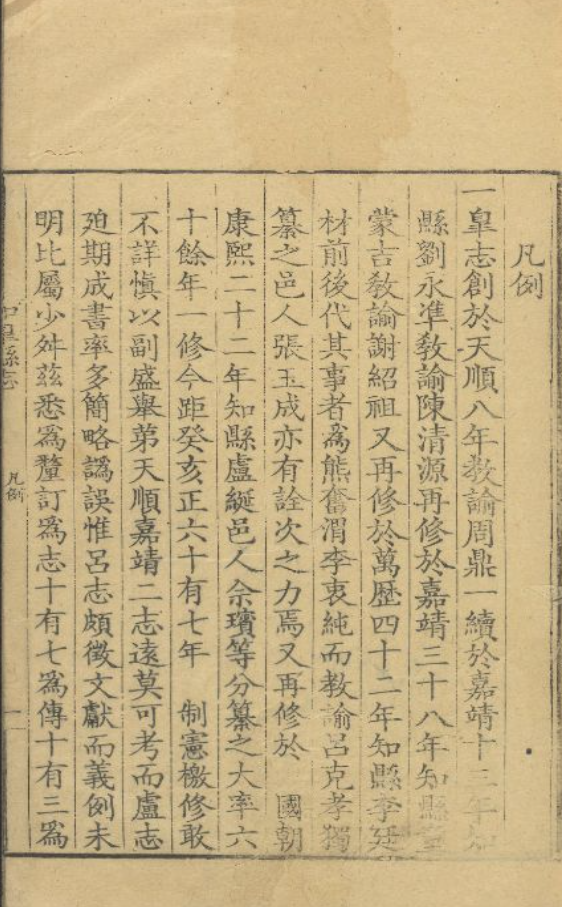 凡例
一皐志創於天順八年教諭周鼎一續於嘉靖十三年知
縣劉永凖教諭陳清源再修於嘉靖三十八年知縣童
蒙吉教諭謝紹祖又再修於萬歷四十二年知縣李廷
材前後代其事者爲熊奮渭李衷純而教諭呂克孝獨
纂之邑人張玉成亦有詮次之力焉又再修於　國朝
康熙二十二年知縣盧綖邑人佘瓆等分纂之大率六
十餘年一修今距癸亥正六十有七年　制憲檄修敢
不詳慎以副盛舉第天順嘉靖二志遠莫可考而盧志
廹期成書率多簡略譌誤惟呂志頗徵文獻而義例未
明比屬少舛茲悉爲釐訂爲志十有七爲傳十有三爲
皐縣志
凡例
一